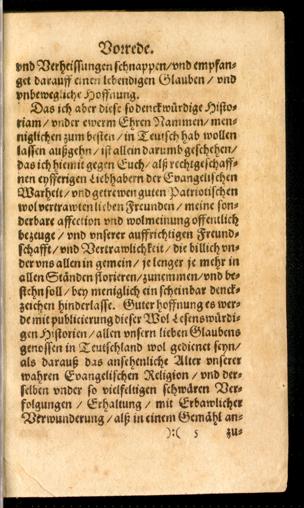 Vorrede.
vnd Verheissungen schnappen/vnd empfan-
get darauff einen lebendigen Glauben / vnd
vnbewegliche Hoffnung.
Das ich aber diese so denckwürdige Histo-
riam / vnder ewerm Ehren Nammen / men-
niglichen zum besten / in Teutsch hab wollen
lassen außgehn / ist allein darumb geschehen/
das ich hiemit gegen Euch / alß rechtgeschaff-
nen eyfferigen Liebhabern der Evangelischen
Warheit / vnd getrewen guten Patriotischen
wolvertrawten lieben Freunden / meine son-
derbare affection vnd wolmeinung offentlich
bezeuge / vnd vnserer auffrichtigen Freund-
schafft / vnd Vertrawlichkeit / die billich vn-
der vns allen in gemein / je lenger je mehr in
allen Ständen florieren / zunemmen / vnd be-
stehn soll / bey meniglich ein scheinbar denck-
zeichen hinderlasse. Guter hoffnung es wer-
de mit publicierung dieser Wol Lesenswürdi-
gen Historien / allen vnsern lieben Glaubens
genossen in Teutschland wol gedienet seyn/
als darauß das ansehenliche Alter vnserer
wahren Evangelischen Religion / vnd der-
selben vnder so vielfeltigen schwären Ver-
folgungen / Erhaltung / mit Erbawlicher
Verwunderung / alß in einem Gemähl an-
):( 5 zu-